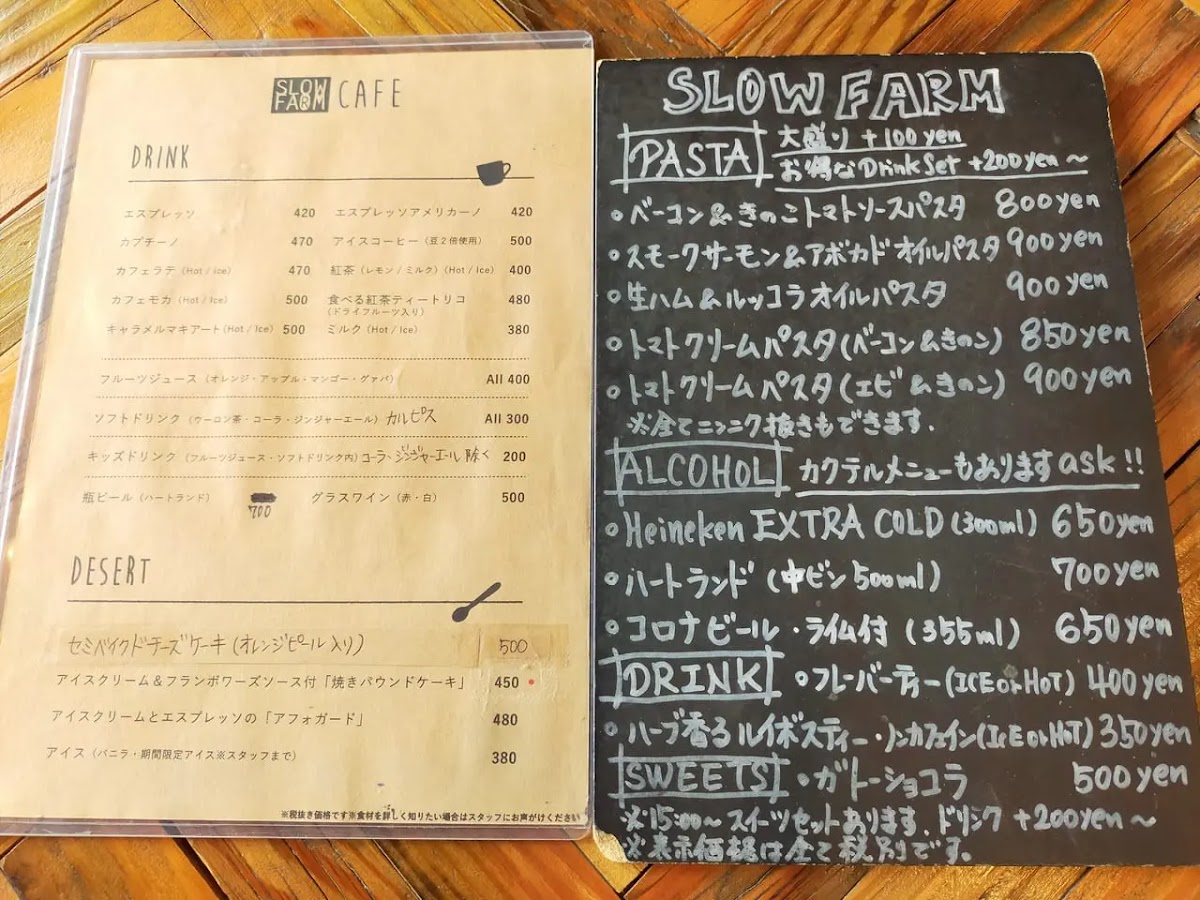 SLOW FARM CAFE
DRINK
エスプレッソ 420 エスプレッソアメリカーノ 420
カプチーノ 470 アイスコーヒー(豆2倍使用) 500
カフェラテ(Hot / Ice) 470 紅茶(レモン / ミルク)(Hot / Ice) 400
カフェモカ(Hot / Ice) 500 食べる紅茶ティートリコ 480
(ドライフルーツ入り)
キャラメルマキアート(Hot / Ice) 500 ミルク(Hot / Ice) 380
フルーツジュース(オレンジ・アップル・マンゴー・グァバ) All 400
ソフトドリンク(ウーロン茶・コーラ・ジンジャーエール) カルピス All 300
キッズドリンク(フルーツジュース・ソフトドリンク内) コーラ・ジンジャーエール 除く 200
瓶ビール(ハートランド) 700 グラスワイン(赤・白) 500
DESERT
セミベイクドチーズケーキ(オレンジピール入り) 500
アイスクリーム&フランボワーズソース付「焼きパウンドケーキ」 450
アイスクリームとエスプレッソの「アフォガード」 480
アイス(バニラ・期間限定アイス※スタッフまで) 380
※税抜き価格です※食材を詳しく知りたい場合はスタッフにお声がけください
SLOW FARM
PASTA 大盛り +100yen
お得なDrink Set +200yen~
ベーコン&きのこトマトソースパスタ 800yen
スモークサーモン&アボカドオイルパスタ 900yen
生ハム&ルッコラオイルパスタ 900yen
トマトクリームパスタ(ベーコン&きのこ) 850yen
トマトクリームパスタ(エビ&きのこ) 900yen
※全てニンニク抜きもできます.
ALCOHOL カクテルメニューもあります ask!!
Heineken EXTRA COLD(300ml) 650yen
ハートランド(中ビン500ml) 700yen
コロナビール・ライム付(355ml) 650yen
DRINK フレーバーティー(ICE or HOT) 400yen
ハーブ香るルイボスティー・ノンカフェイン(ICE or HOT) 350yen
SWEETS ガトーショコラ 500yen
※15:00~スイーツセットあります.ドリンク +200yen~
※表示価格は全て税別です.